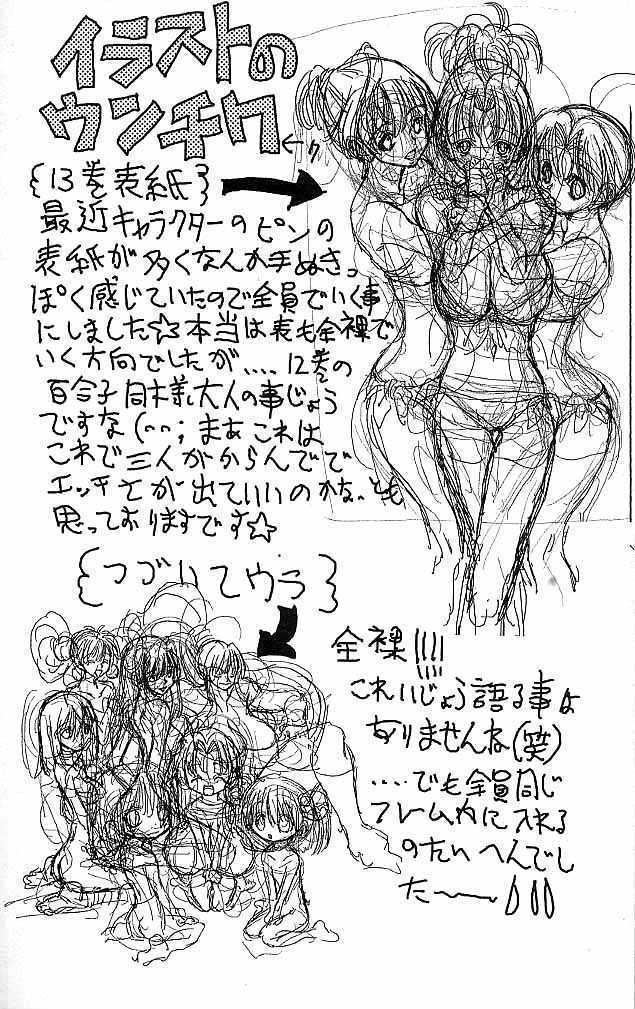 イラストの
ウンチク
{13巻表紙}
最近キャラクターのピンの
表紙が多くなんか手ぬきっ
ぽく感じていたので全員でいく事
にしました☆本当は表も全裸で
いく方向でしたが....12巻の
百合子同様大人の事じょう
ですな(^^;まあこれは
これで三人がからんでて
エッチさが出ていいのかな..とも
思っておりますです☆
{つづいてウラ}
全裸!!!!
これいじょう語る事は
ありませんね(笑)
....でも全員同じ
フレーム内に入れる
のたいへんでし
た〜